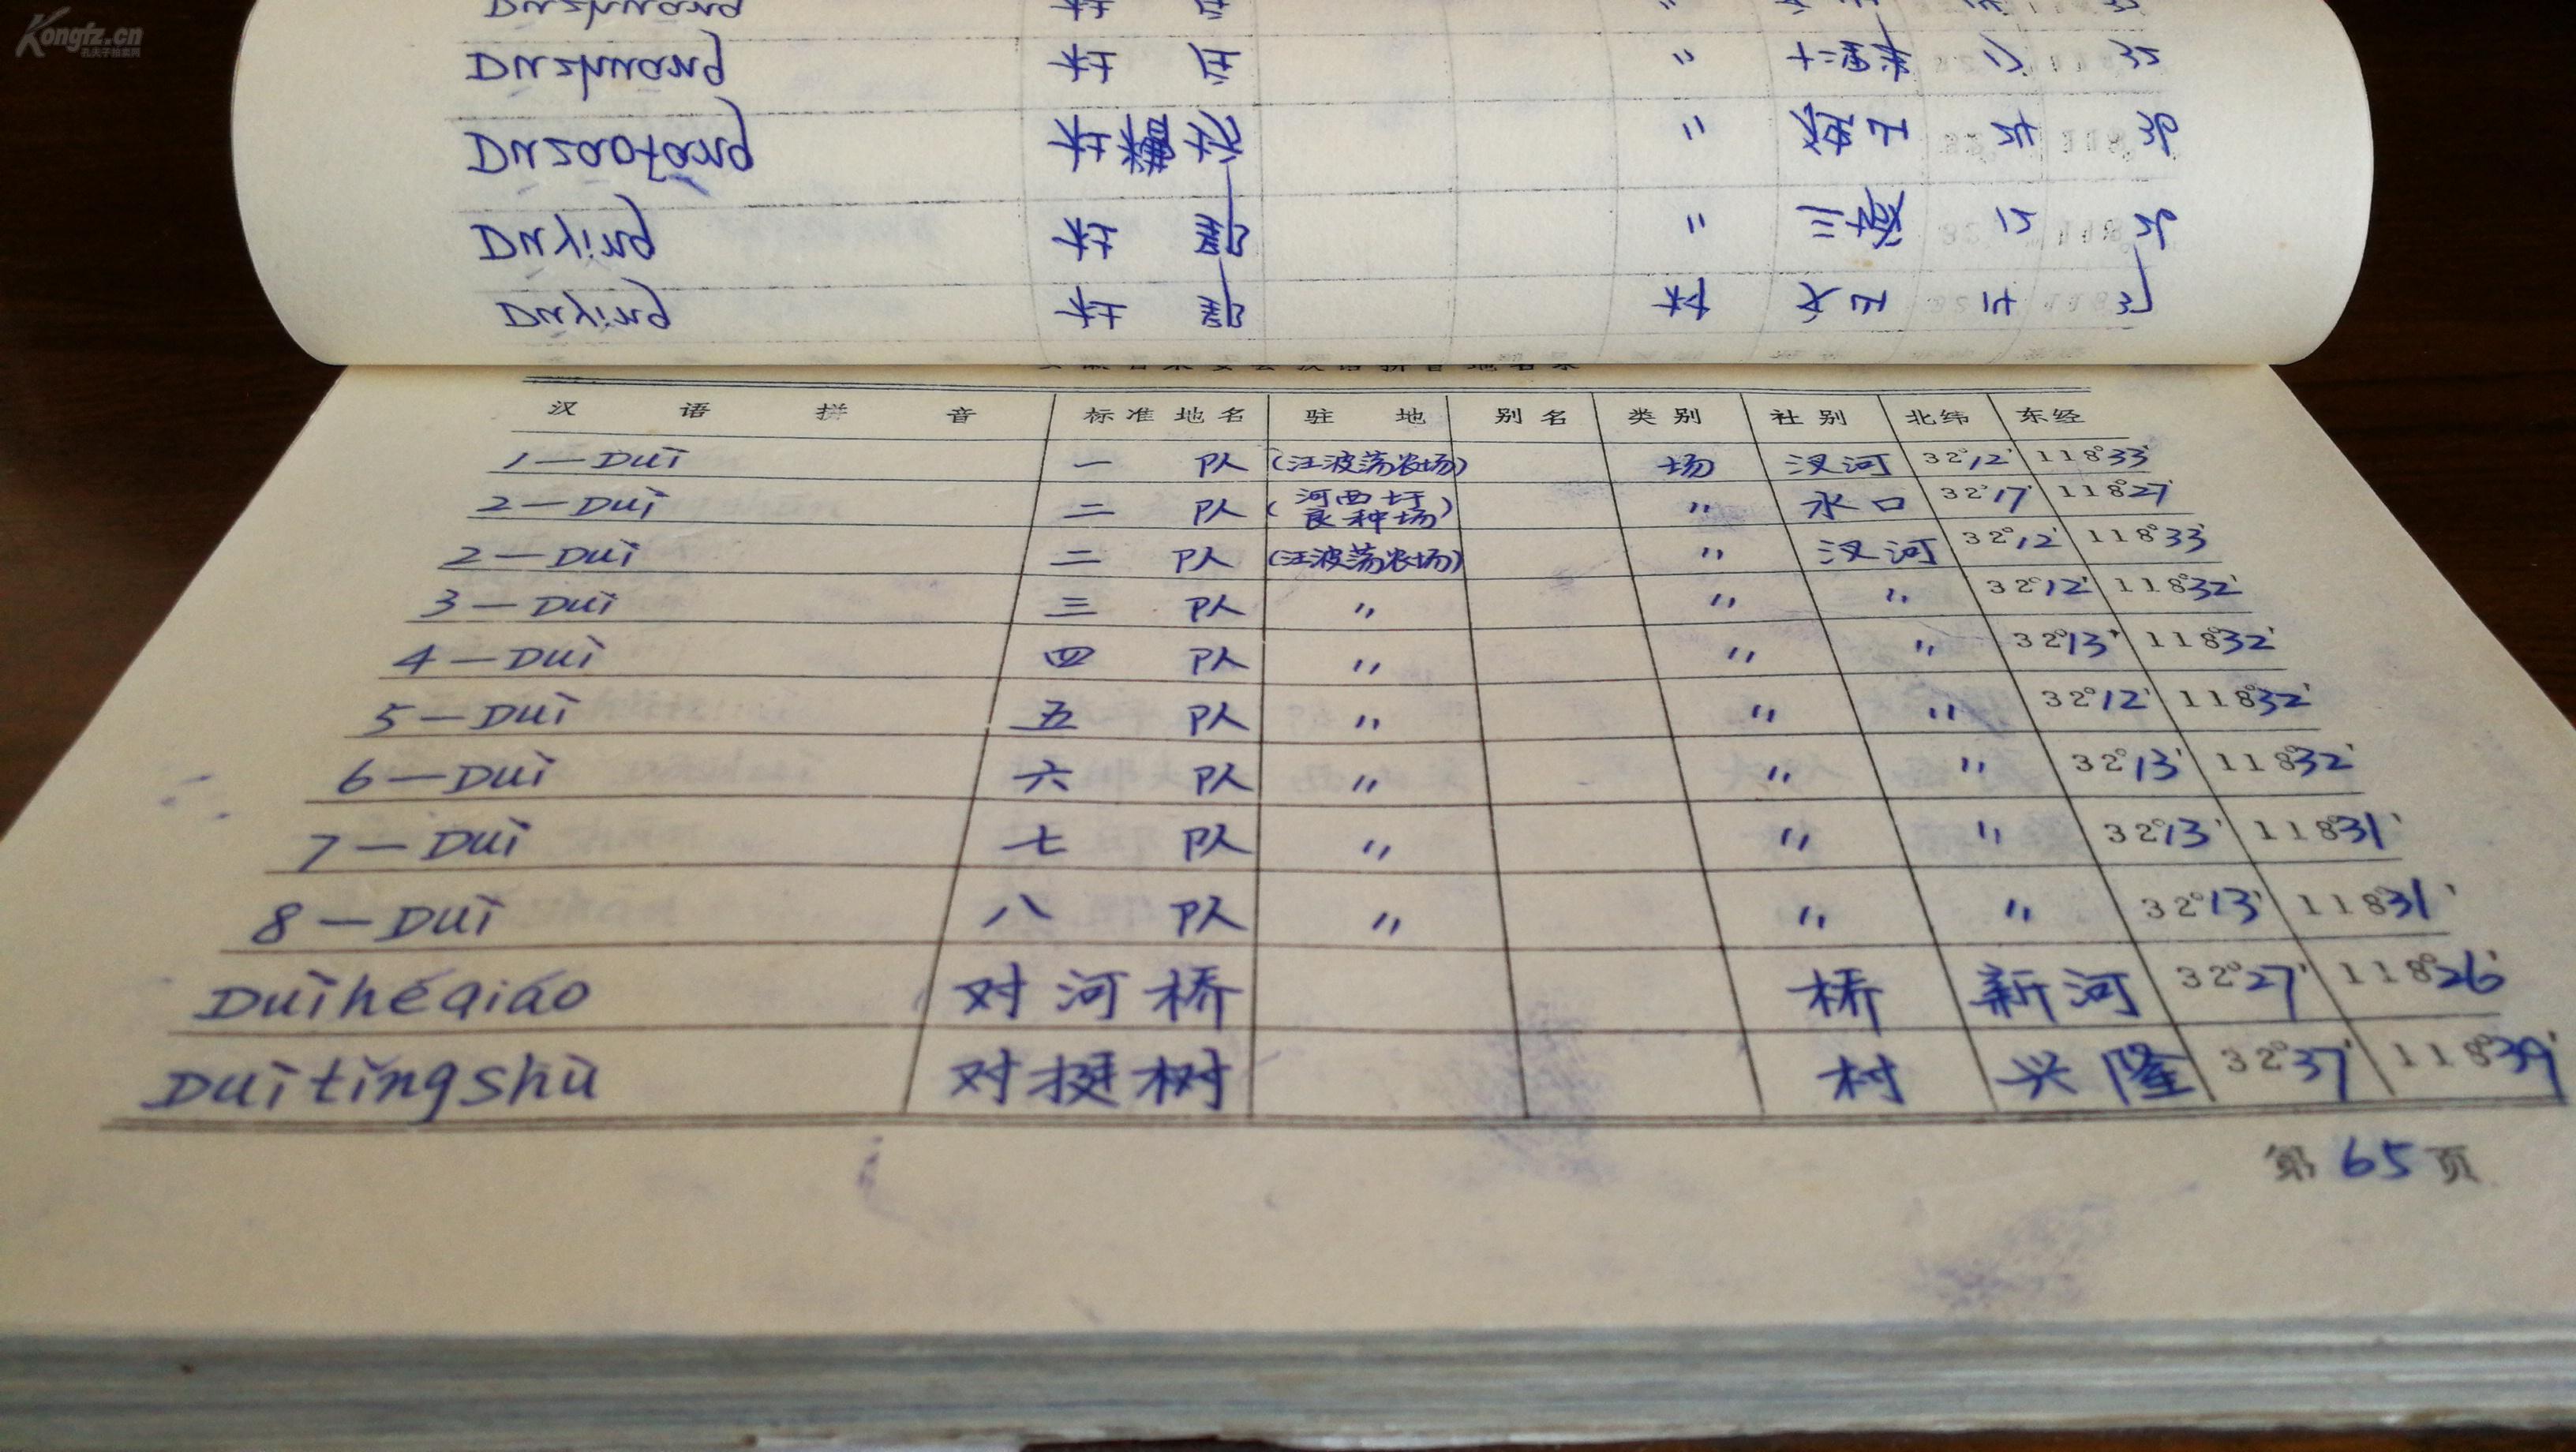 Kongfz.cn
孔夫子旧书网
Duzhuang 杜 庄
Duzhuang 杜 庄 〃
Duzaofang 杜糟坊 〃 24 39
Duying 杜 郢 〃 三城 29
Duying 杜 郢 村 14 37
安徽省来安县汉语拼音地名录
汉语拼音 标准地名 驻地 别名 类别 社别 北纬 东经
1—Duì 一队 (汪波荡农场) 场 汊河 32°12′ 118°33′
2—Duì 二队 (河西圩良种场) 〃 水口 32°17′ 118°27′
2—Duì 二队 (汪波荡农场) 〃 汊河 32°12′ 118°33′
3—Duì 三队 〃 〃 〃 32°12′ 118°32′
4—Duì 四队 〃 〃 〃 32°13′ 118°32′
5—Duì 五队 〃 〃 〃 32°12′ 118°32′
6—Duì 六队 〃 〃 〃 32°13′ 118°32′
7—Duì 七队 〃 〃 〃 32°13′ 118°31′
8—Duì 八队 〃 〃 〃 32°13′ 118°31′
Duìhéqiáo 对河桥 桥 新河 32°27′ 118°26′
Duìtǐngshù 对挺树 村 兴隆 32°37′ 118°39′
第65页